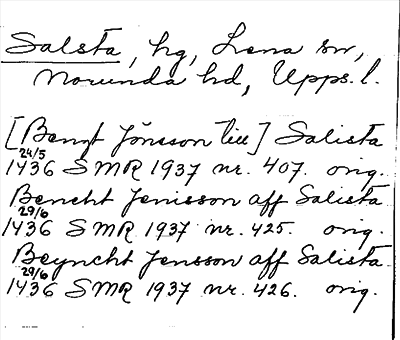 Salsta, hg, Lena sn,
Norunda hd, Upps. l.
[Bengt Jönsson till] Salista
24/5
1436 SMR 1937 nr. 407. orig.
Bencht Jenisson aff Salista
29/6
1436 SMR 1937 nr. 425. orig.
Beyncht Jensson aff Salista
29/6
1436 SMR 1937 nr. 426. orig.